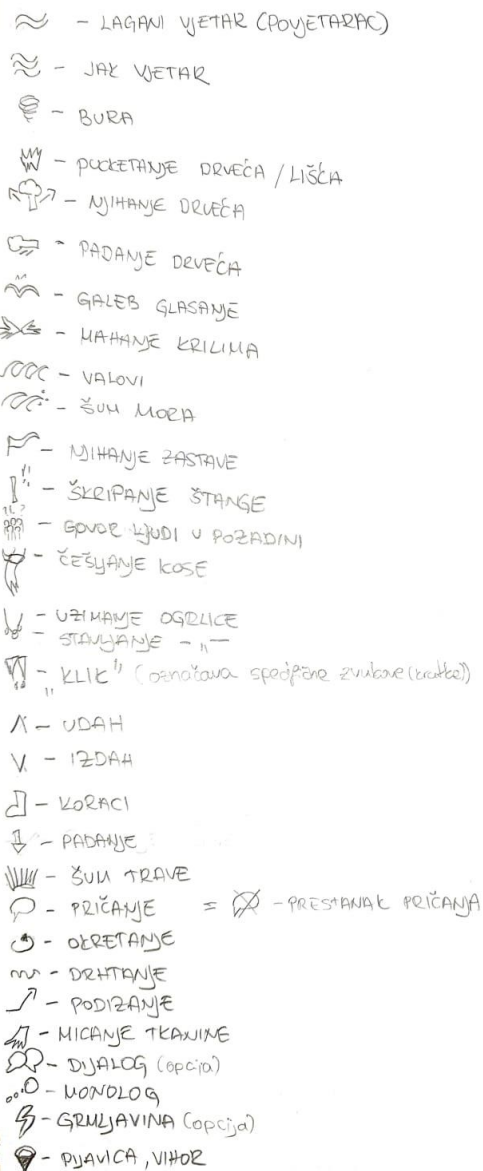 - LAGANI VJETAR (POVJETARAC)
- JAK VJETAR
- BURA
- PUCKETANJE DRVEĆA / LIŠĆA
- NJIHANJE DRVEĆA
- PADANJE DRVEĆA
- GALEB GLASANJE
- MAHANJE KRILIMA
- VALOVI
- ŠUM MORA
- NJIHANJE ZASTAVE
- ŠKRIPANJE ŠTANGE
- GOVOR LJUDI U POZADINI
- ČEŠLJANJE KOSE
- UZIMANJE OGRLICE
- STAVLJANJE -"-
- "KLIK" (označava specifične zvukove (kratke))
- UDAH
- IZDAH
- KORACI
- PADANJE
- ŠUM TRAVE
- PRIČANJE = - PRESTANAK PRIČANJA
- OKRETANJE
- DRHTANJE
- PODIZANJE
- MICANJE TKANINE
- DIJALOG (opcija)
- MONOLOG
- GRMLJAVINA (opcija)
- PIJAVICA, VIHOR